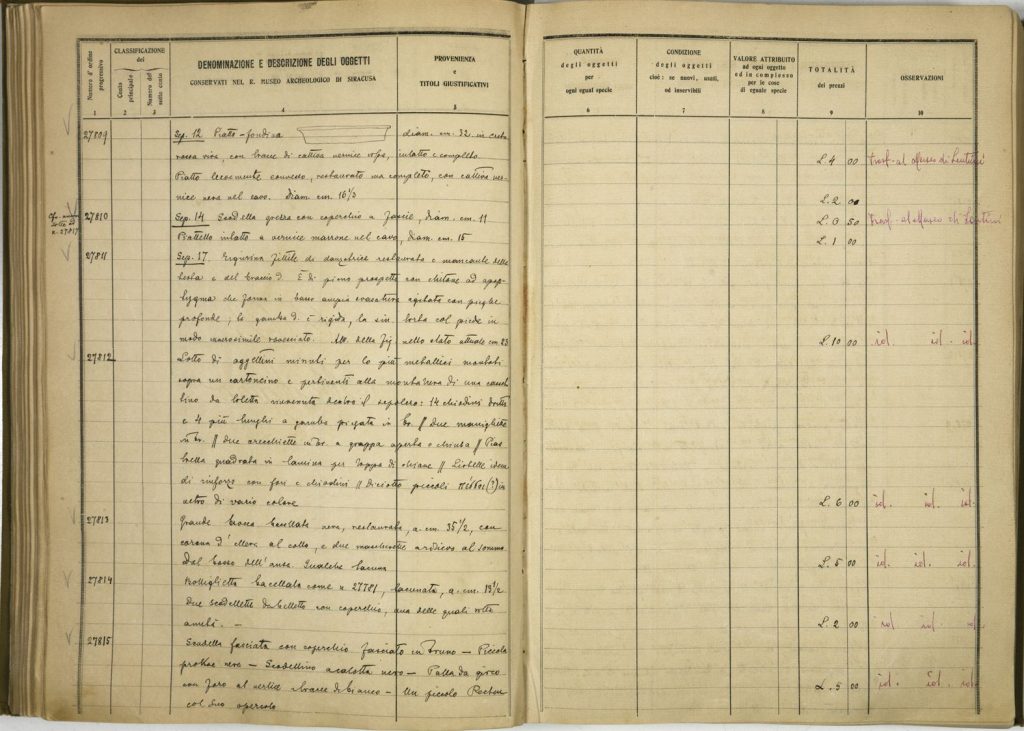 Numero d'ordine progressivo
CLASSIFICAZIONE
del
Conto principale
Numero del sotto conto
DENOMINAZIONE E DESCRIZIONE DEGLI OGGETTI
CONSERVATI NEL R. MUSEO ARCHEOLOGICO DI SIRACUSA
PROVENIENZA
e
TITOLI GIUSTIFICATIVI
1 2 3 4 5
27809 Sep. 12 Piatto-fondina diam. cm. 32. in creta
rossa viva, con tracce di cattiva vernice rossa, intatto e completo
Piatto lievemente convesso, restaurato ma completo, con cattiva ver-
nice nera nel cavo. Diam cm 16 1/2
27810 Sep. 14 Scodella grezza con coperchio a fascie, diam. cm. 11
n. 27817
Piattello intatto a vernice marrone nel cavo, diam. cm. 15
27811 Sep. 17. Figurina fittile di danzatrice restaurata e mancante della
testa e del braccio d. È di pieno prospetto con chitone ad apop-
tygma che forma in basso ampia svasatura agitata con pieghe
profonde; la gamba d. è rigida, la sin. col piede in
modo rovesciato. Alt. della fig. nello stato attuale cm. 23
27812 Lotto di oggettini minuti per lo più metallici montati
sopra un cartoncino e pertinenti alla montatura di una casset-
tino da toletta rinvenuta dentro il sepolcro: 14 chiodini dritti
e 4 più lunghi a gamba piegata in br. // due maniglie
in br. // due orecchiette in br. a grappa aperta e chiusa // Pias-
trella quadrata in lamina per toppa di chiave // Listelle idem
di rinforzo con fori e chiodini // diciotto piccoli (?) in
vetro di vario colore
27813 Grande brocca baccellata nera, restaurata, a. cm. 35 1/2, con
corona d'ellera al collo, e due mascherette al sommo
dal basso dell'ansa. Qualche lacuna
27814 Bottiglietta baccellata come n 27781, lacunata, a. cm. 13 1/2
Due scodellette da belletto con coperchio, una delle quali rotta
ambi. —
27815 Scodella fasciata con coperchio fasciato in bruno — Piccola
prokoe nera — Scodellino a calotta nero — Palla da gioco
con foro al vertice tracce di bianco — Un piccolo
col suo opercolo
QUANTITÀ
degli oggetti
per
ogni ogual specie
CONDIZIONE
degli oggetti
cioè: se nuovi, usati,
od inservibili
VALORE ATTRIBUITO
ad ogni oggetto
ed in complesso
per le cose
di eguale specie
TOTALITÀ
dei prezzi
OSSERVAZIONI
6 7 8 9 10
L. 4 00 Trasf. al Museo di Lentini
L. 2 00
L. 0 50 Trasf. al Museo di Lentini
L. 1 00
L. 10 00 id. id. id.
L. 6 00 id. id. id.
L. 5 00 id. id. id.
L. 2 00 id id. id
L. 5 00 id. id. id.